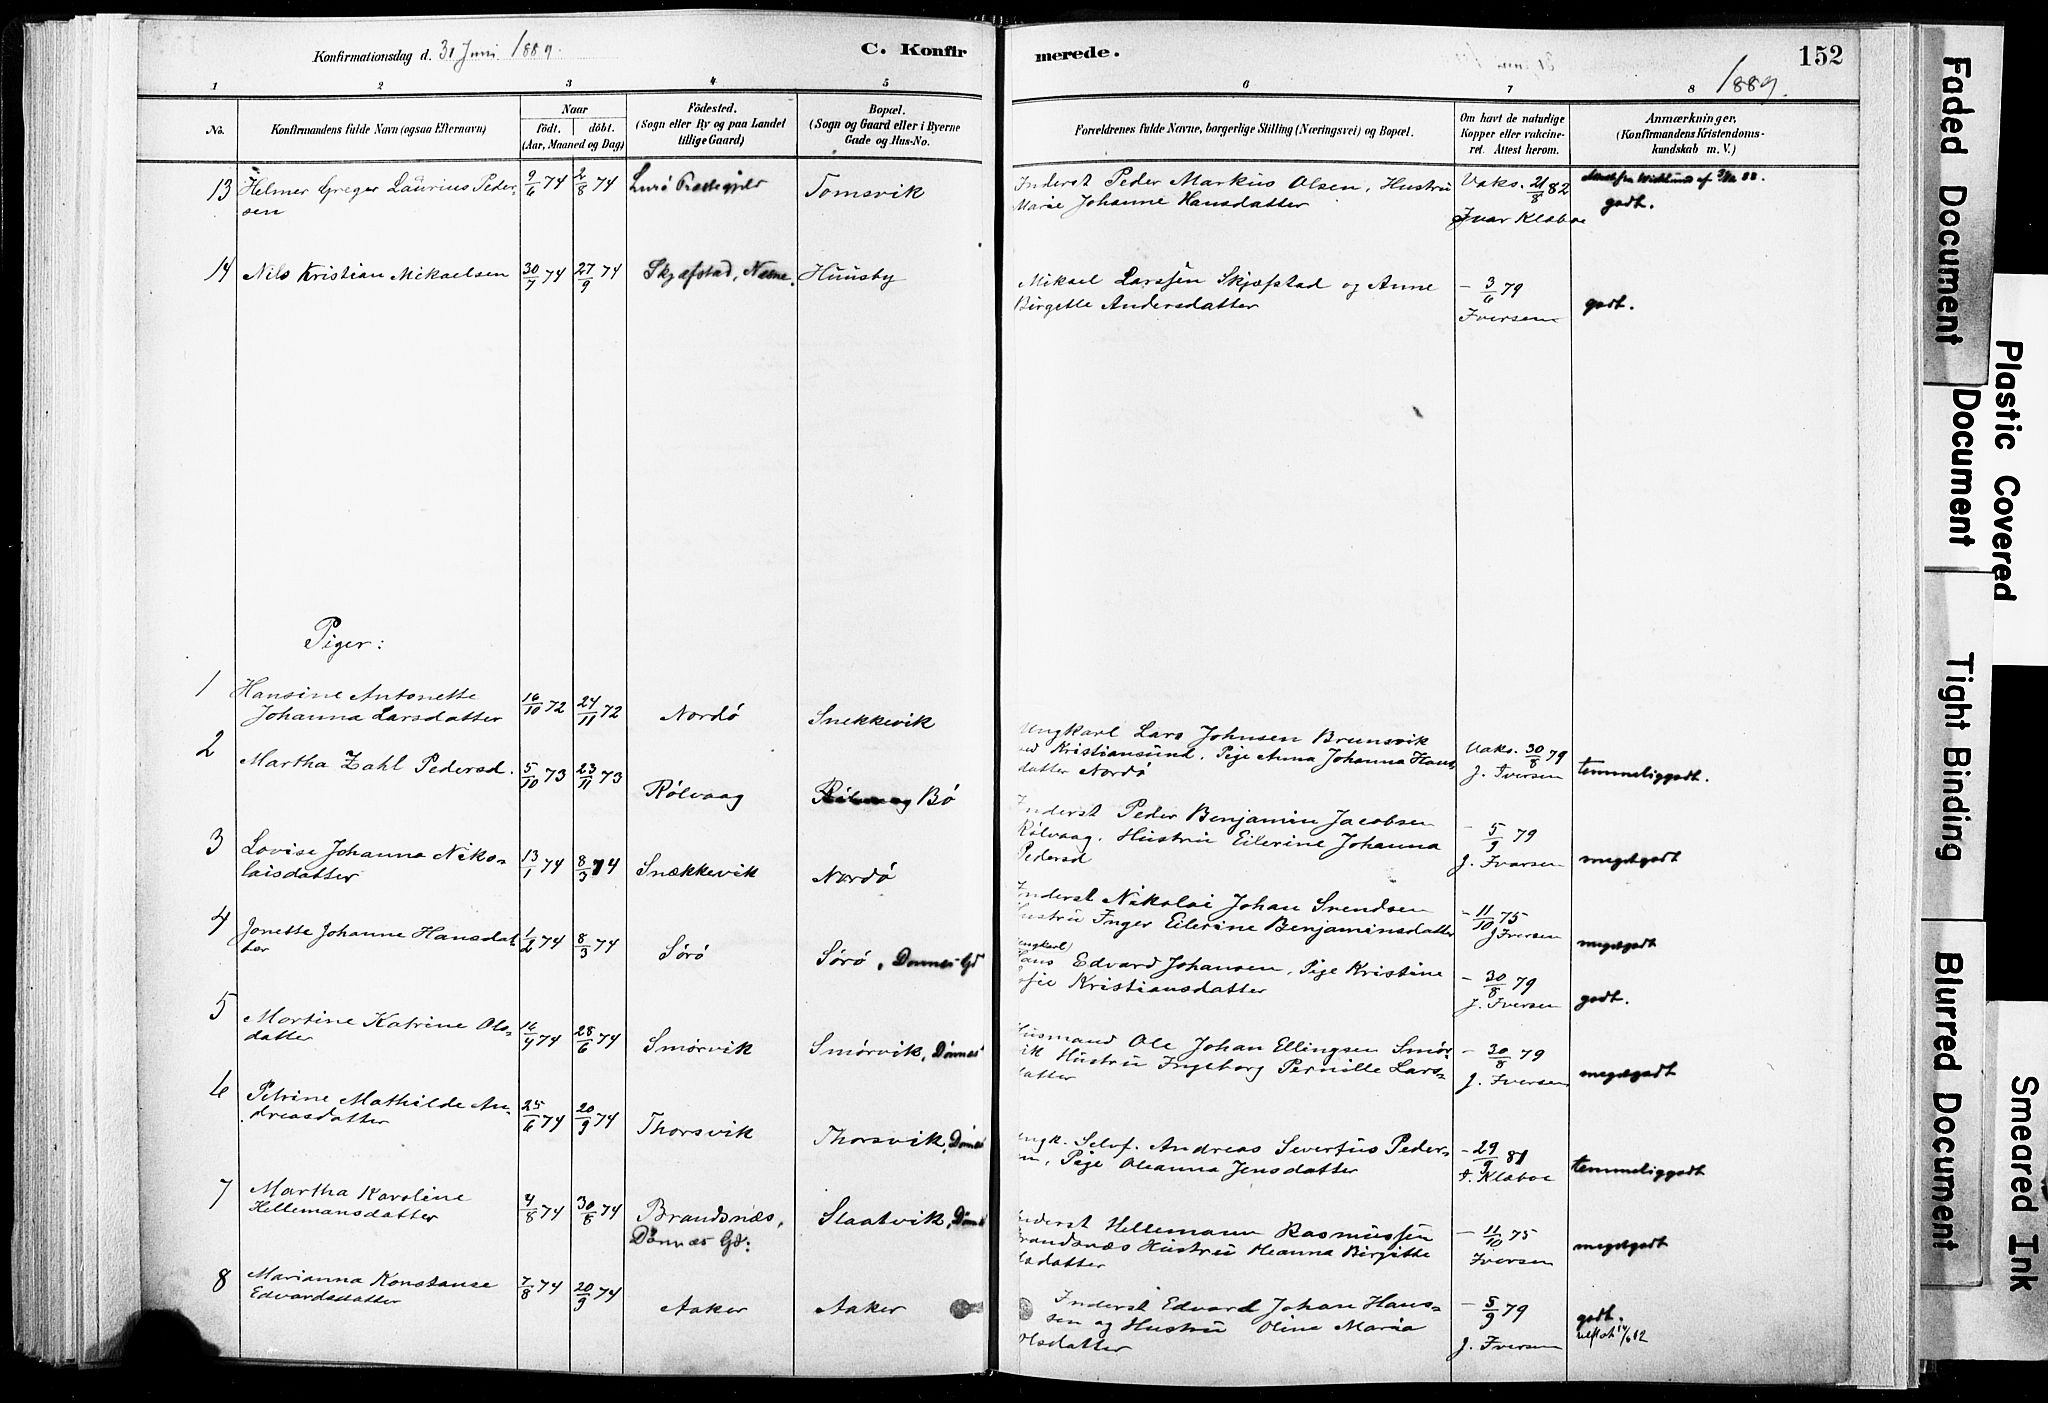 Konfirmationsdag d. 30 Juni 1889.
C. Konfir
merede.
152
1889.
1 2 3 4 5 6 7 8
No.
Konfirmandens fulde Navn (ogsaa Efternavn)
Naar
födt. döbt.
(Aar, Maaned og Dag)
Födested.
(Sogn eller By og paa Landet
tillige Gaard)
Bopæl.
(Sogn og Gaard eller i Byerne
Gade og Hus-No.
Forældrenes fulde Navne, borgerlige Stilling (Næringsvei) og Bopæl.
Om havt de naturlige
Kopper eller vakcine-
ret. Attest herom.
Anmærkninger.
(Konfirmandens Kristendoms-
kundskab m. V.)
13 Helmer Greger Laurius Peder-
sen
9/6 74 2/8 74 Lurö Præstegjeld Tomsvik
Inderst Peder Markus Olsen, Hustru
Marie Johanne Hansdatter
Vaks. 21/8 82
Ivar Klæboe
godt.
14 Nils Kristian Mikaelsen 30/7 74 27/9 74 Skjæfstad, Nesne. Huusby
Mikael Larssen Skjæfstad og Anne
Birgette Andersdatter
- 3/6 79
Iversen
godt.
Piger:
1 Hansine Antonette
Johanna Larsdatter
16/10 72 24/11 72 Nordö Snekkevik
Ungkarl Lars Johnsen Brunsvik
ved Kristiansund, Pige Anna Johanna Hans-
datter Nordö
Vaks. 30/8 79
J. Iversen
temmeliggodt.
2 Martha Zahl Pedersd. 5/10 73 23/11 73 Rölvaag Bö
Inderst Peder Benjamin Jacobsen
Rölvaag, Hustru Eilerine Johanna
Pedersd
- 5/9 79
J. Iversen
megetgodt
3 Lovise Johanna Niko-
laisdatter
13/1 74 8/3 74 Snækkevik Nordö
Inderst Nikolai Johan Svendsen
Hustru Inger Eilerine Benjaminsdatter
- 11/10 75
J Iversen
megetgodt
4 Jonette Johanne Hansdat
ter
1/2 74 8/3 74 Sörö Sörö, Dønnes Gd
Ungkarl
Hans Edvard Johansen, Pige Kristine
Sofie Kristiansdatter
- 30/8 79
J. Iversen
godt.
5 Martine Katrine Ols-
datter
16/4 74 28/6 74 Smörvik Smörvik, Dönnes
Husmand Ole Johan Ellingsen Smör-
vik Hustru Ingeborg Pernille Lars-
datter
- 30/8 79
J. Iversen
megetgodt
6 Petrine Mathilde An-
dreasdatter
25/6 74 20/9 74 Thorsvik Thorsvik, Dönnes
Ungk. Selvf. Andreas Severtus Peder-
sen, Pige Oleanna Jensdatter
- 29/9 81
I. Klæboe
temmeliggodt
7 Martha Karoline
Hellemansdatter
4/8 74 30/8 74 Brandsnæs,
Dönnæs Gd: Slaatvik, Dönnes
Inderst Hellemann Rasmussen
Brandsnæs Hustru Oleanna Birgitte
Olsdatter
- 11/10 75
Iversen
megetgodt
8 Marianna Konstanse
Edvardsdatter
7/8 74 20/9 74 Aaker Aaker
Inderst Edvard Johan Hans-
sen og Hustru Oline Maria
Olsdatter
- 5/9 79
J. Iversen
godt.
Faded Document
Plastic Covered Document
Tight Binding
Blurred Document
Smeared Ink